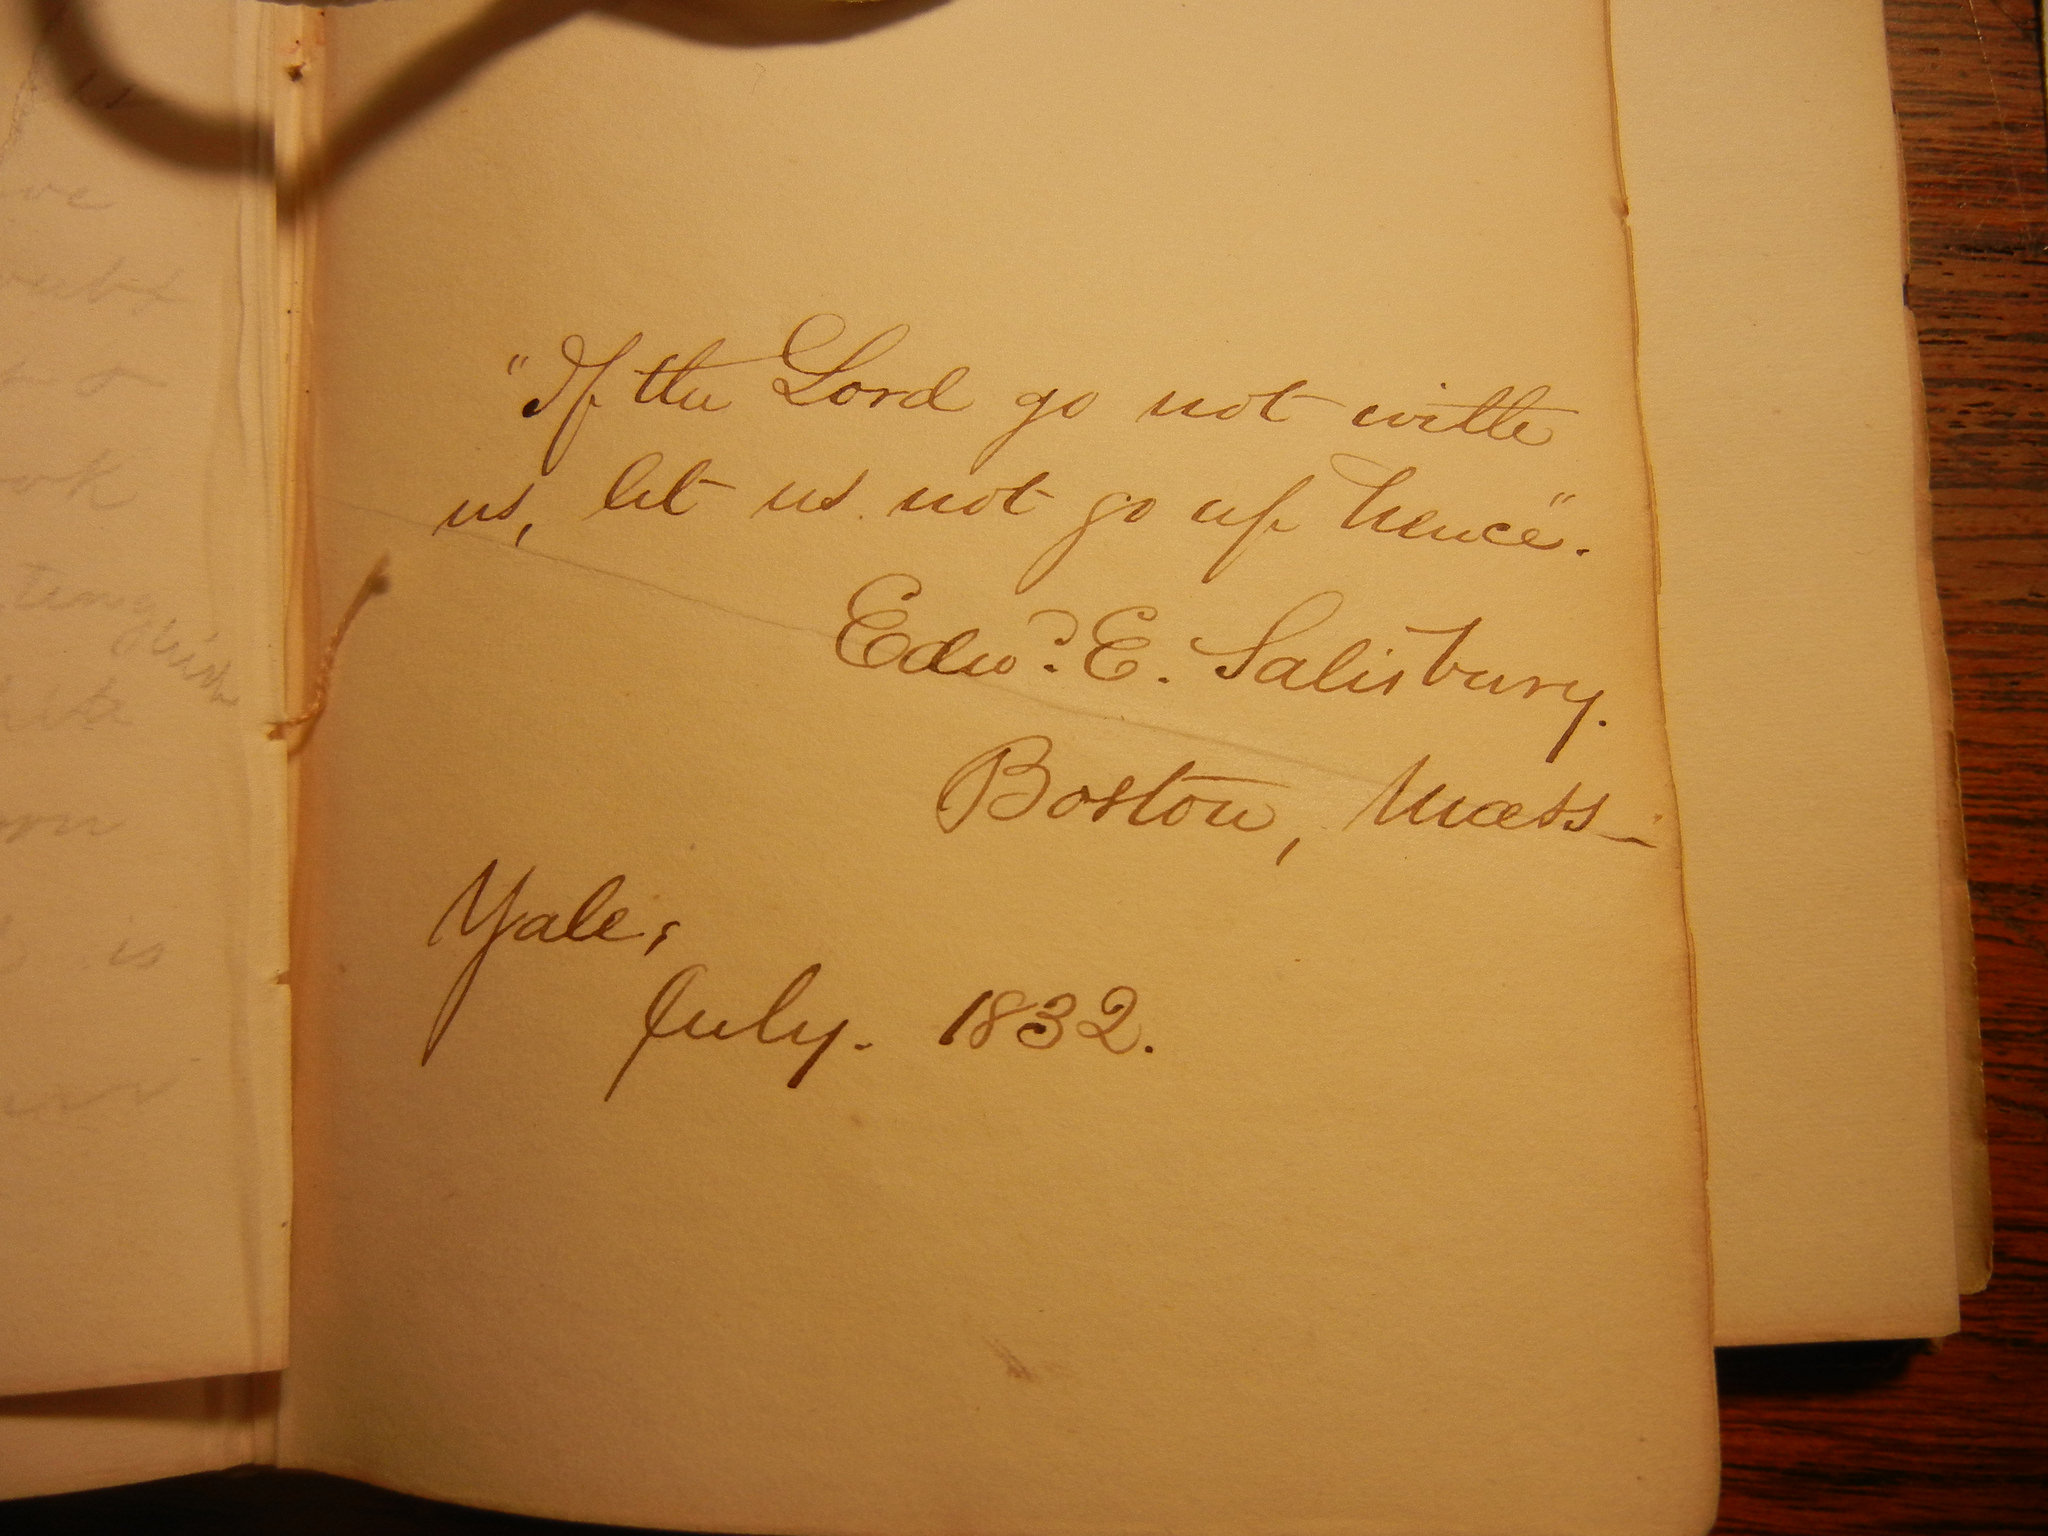 "If the Lord go not with
us, let us not go up hence".
Edwd. E. Salisbury.
Boston, Mass.
Yale,
July. 1832.
is